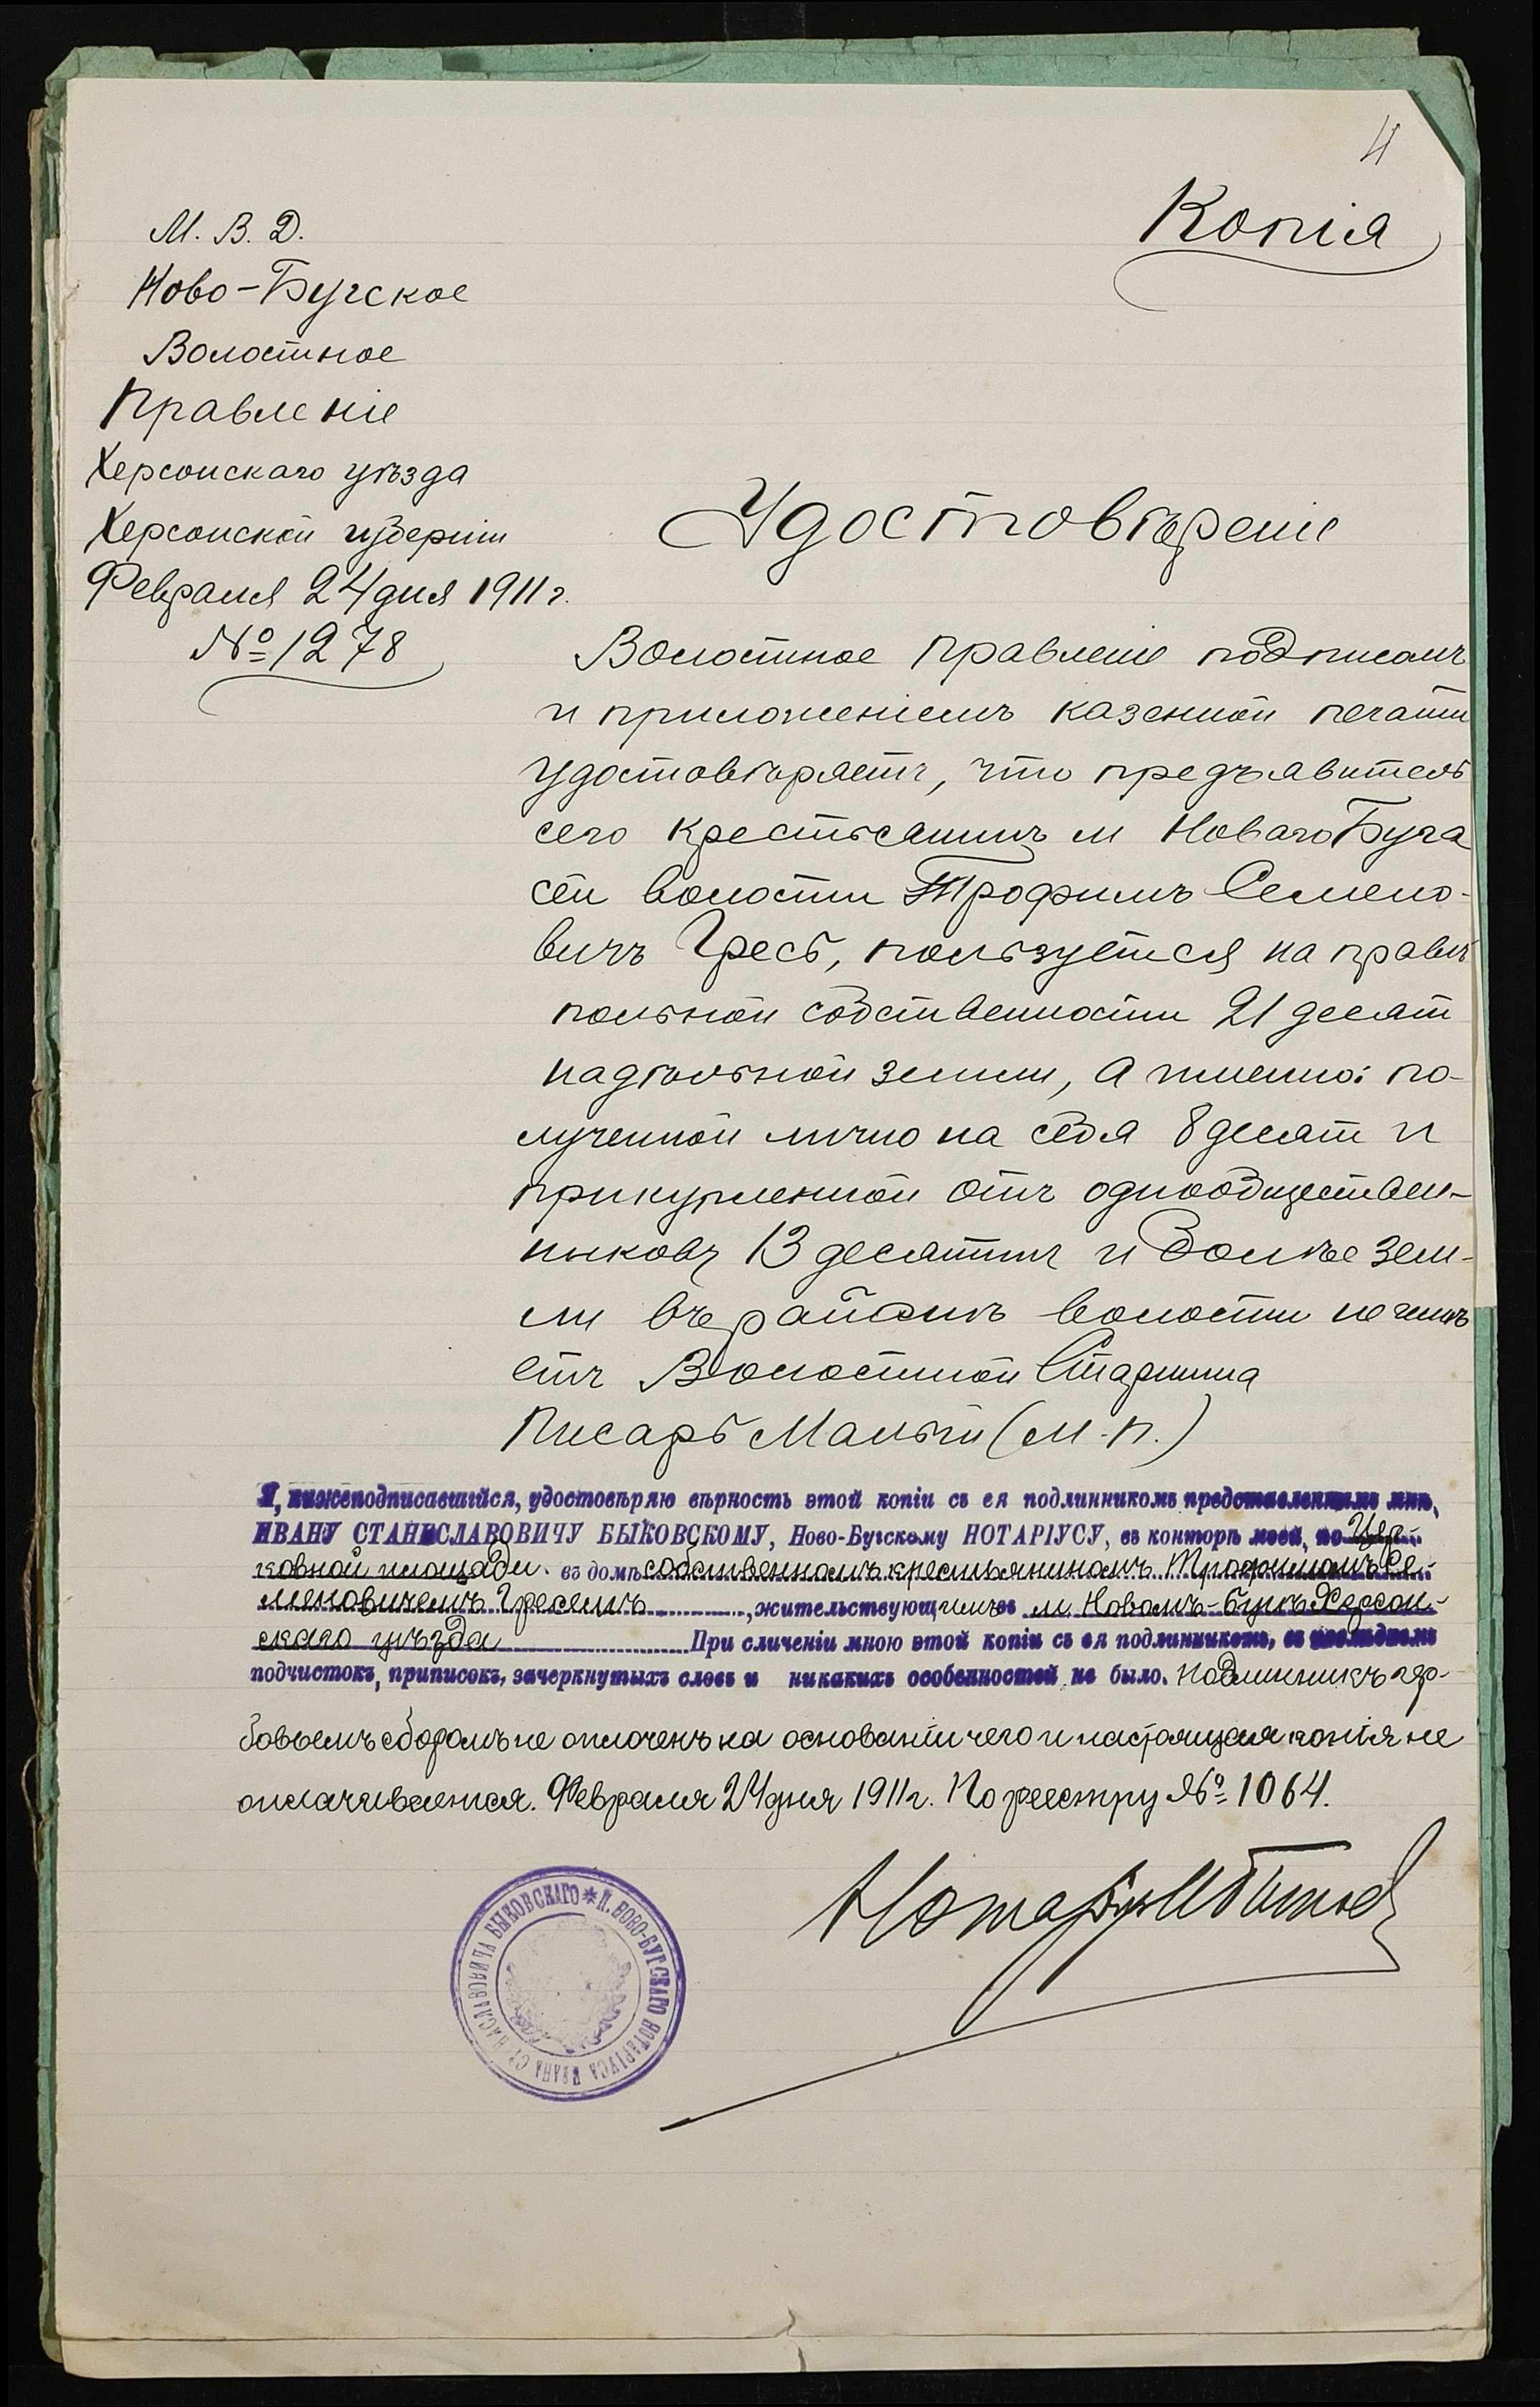 4
Копія
М. В. Д.
Ново-Бугское
Волостное
Правленіе
Херсонскаго уѣзда
Херсонской губерніи
Февраля 24 дня 1911 г.
№ 1278
Удостовѣреніе
Волостное Правленіе подписомъ
и приложеніемъ казенной печати
удостовѣряетъ, что предъявитель
сего крестьянинъ м Новаго Буга
сей волости Трофимъ Семено-
вичъ Гресь, пользуется на правѣ
полной собственности 21 десят
надѣльной земли, а именно: по-
лученной лично на себя 8 десят и
прикупленной отъ однообществен-
никовъ 13 десятинъ и болѣе зем-
ли въ районѣ волости не имѣ
етъ Волостной Старшина
Писарь Малый (М. П.)
Я, нижеподписавшійся, удостовѣряю вѣрность этой копіи съ ея подлинникомъ представленнымъ мнѣ,
ИВАНУ СТАНИСЛАВОВИЧУ БЫКОВСКОМУ, Ново-Бугскому НОТАРІУСУ, въ конторѣ моей, по Цер-
ковной площади въ домѣ собственномъ крестьяниномъ Трофимомъ Се-
меновичемъ Гресемъ, жительствующимъ въ м. Новомъ-Бугѣ Херсон-
скаго уѣзда При сличеніи мною этой копіи съ ея подлинникомъ, въ послѣднемъ
подчистокъ, приписокъ, зачеркнутыхъ словъ и никакихъ особенностей не было. Подлинникъ гер-
бовымъ сборомъ не оплоченъ на основаніи чего и настоящая копія не
оплачивается. Февраля 24 дня 1911 г. По реестру № 1064.
Нотаріусъ
* П. НОВО-БУГСКАГО НОТАРІУСА ИВАНА СТАНИСЛАВОВИЧА БЫКОВСКАГО